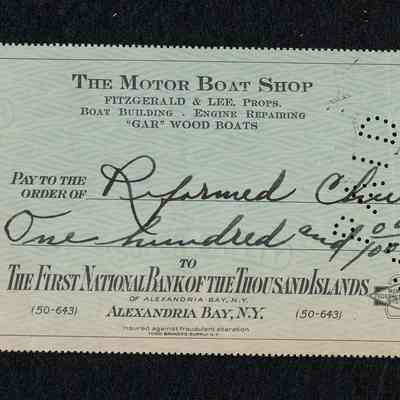 THE MOTOR BOAT SHOP
FITZGERALD & LEE, PROPS.
BOAT BUILDING . ENGINE REPAIRING
"GAR" WOOD BOATS
PAY TO THE
ORDER OF Reformed
One hundred and 00/100
TO
THE FIRST NATIONAL BANK OF THE THOUSAND ISLANDS
OF ALEXANDRIA BAY, N.Y.
(50-643) ALEXANDRIA BAY, N.Y. (50-643)
Insured against fraudulent alteration